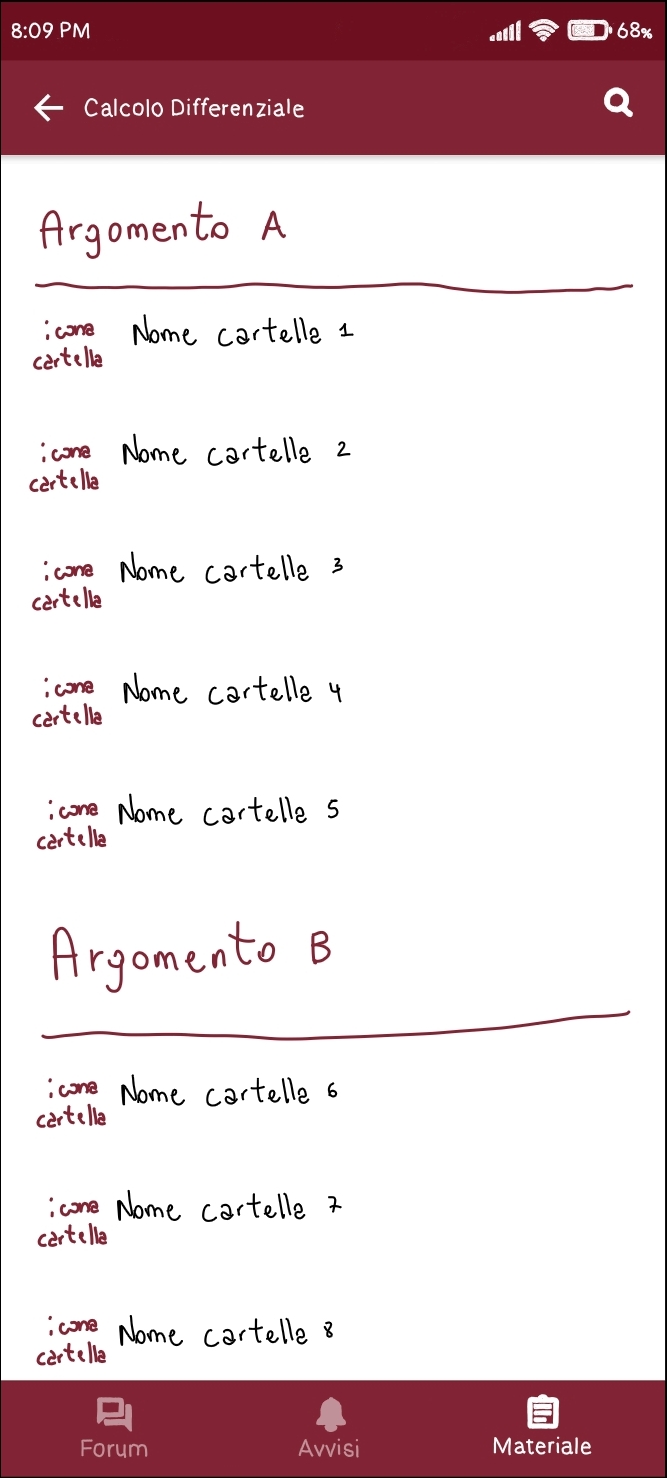 8:09 PM 68%
Calcolo Differenziale
Argomento A
icona cartella Nome cartella 1
icona cartella Nome cartella 2
icona cartella Nome cartella 3
icona cartella Nome cartella 4
icona cartella Nome cartella 5
Argomento B
icona cartella Nome cartella 6
icona cartella Nome cartella 7
icona cartella Nome cartella 8
Forum Avvisi Materiale